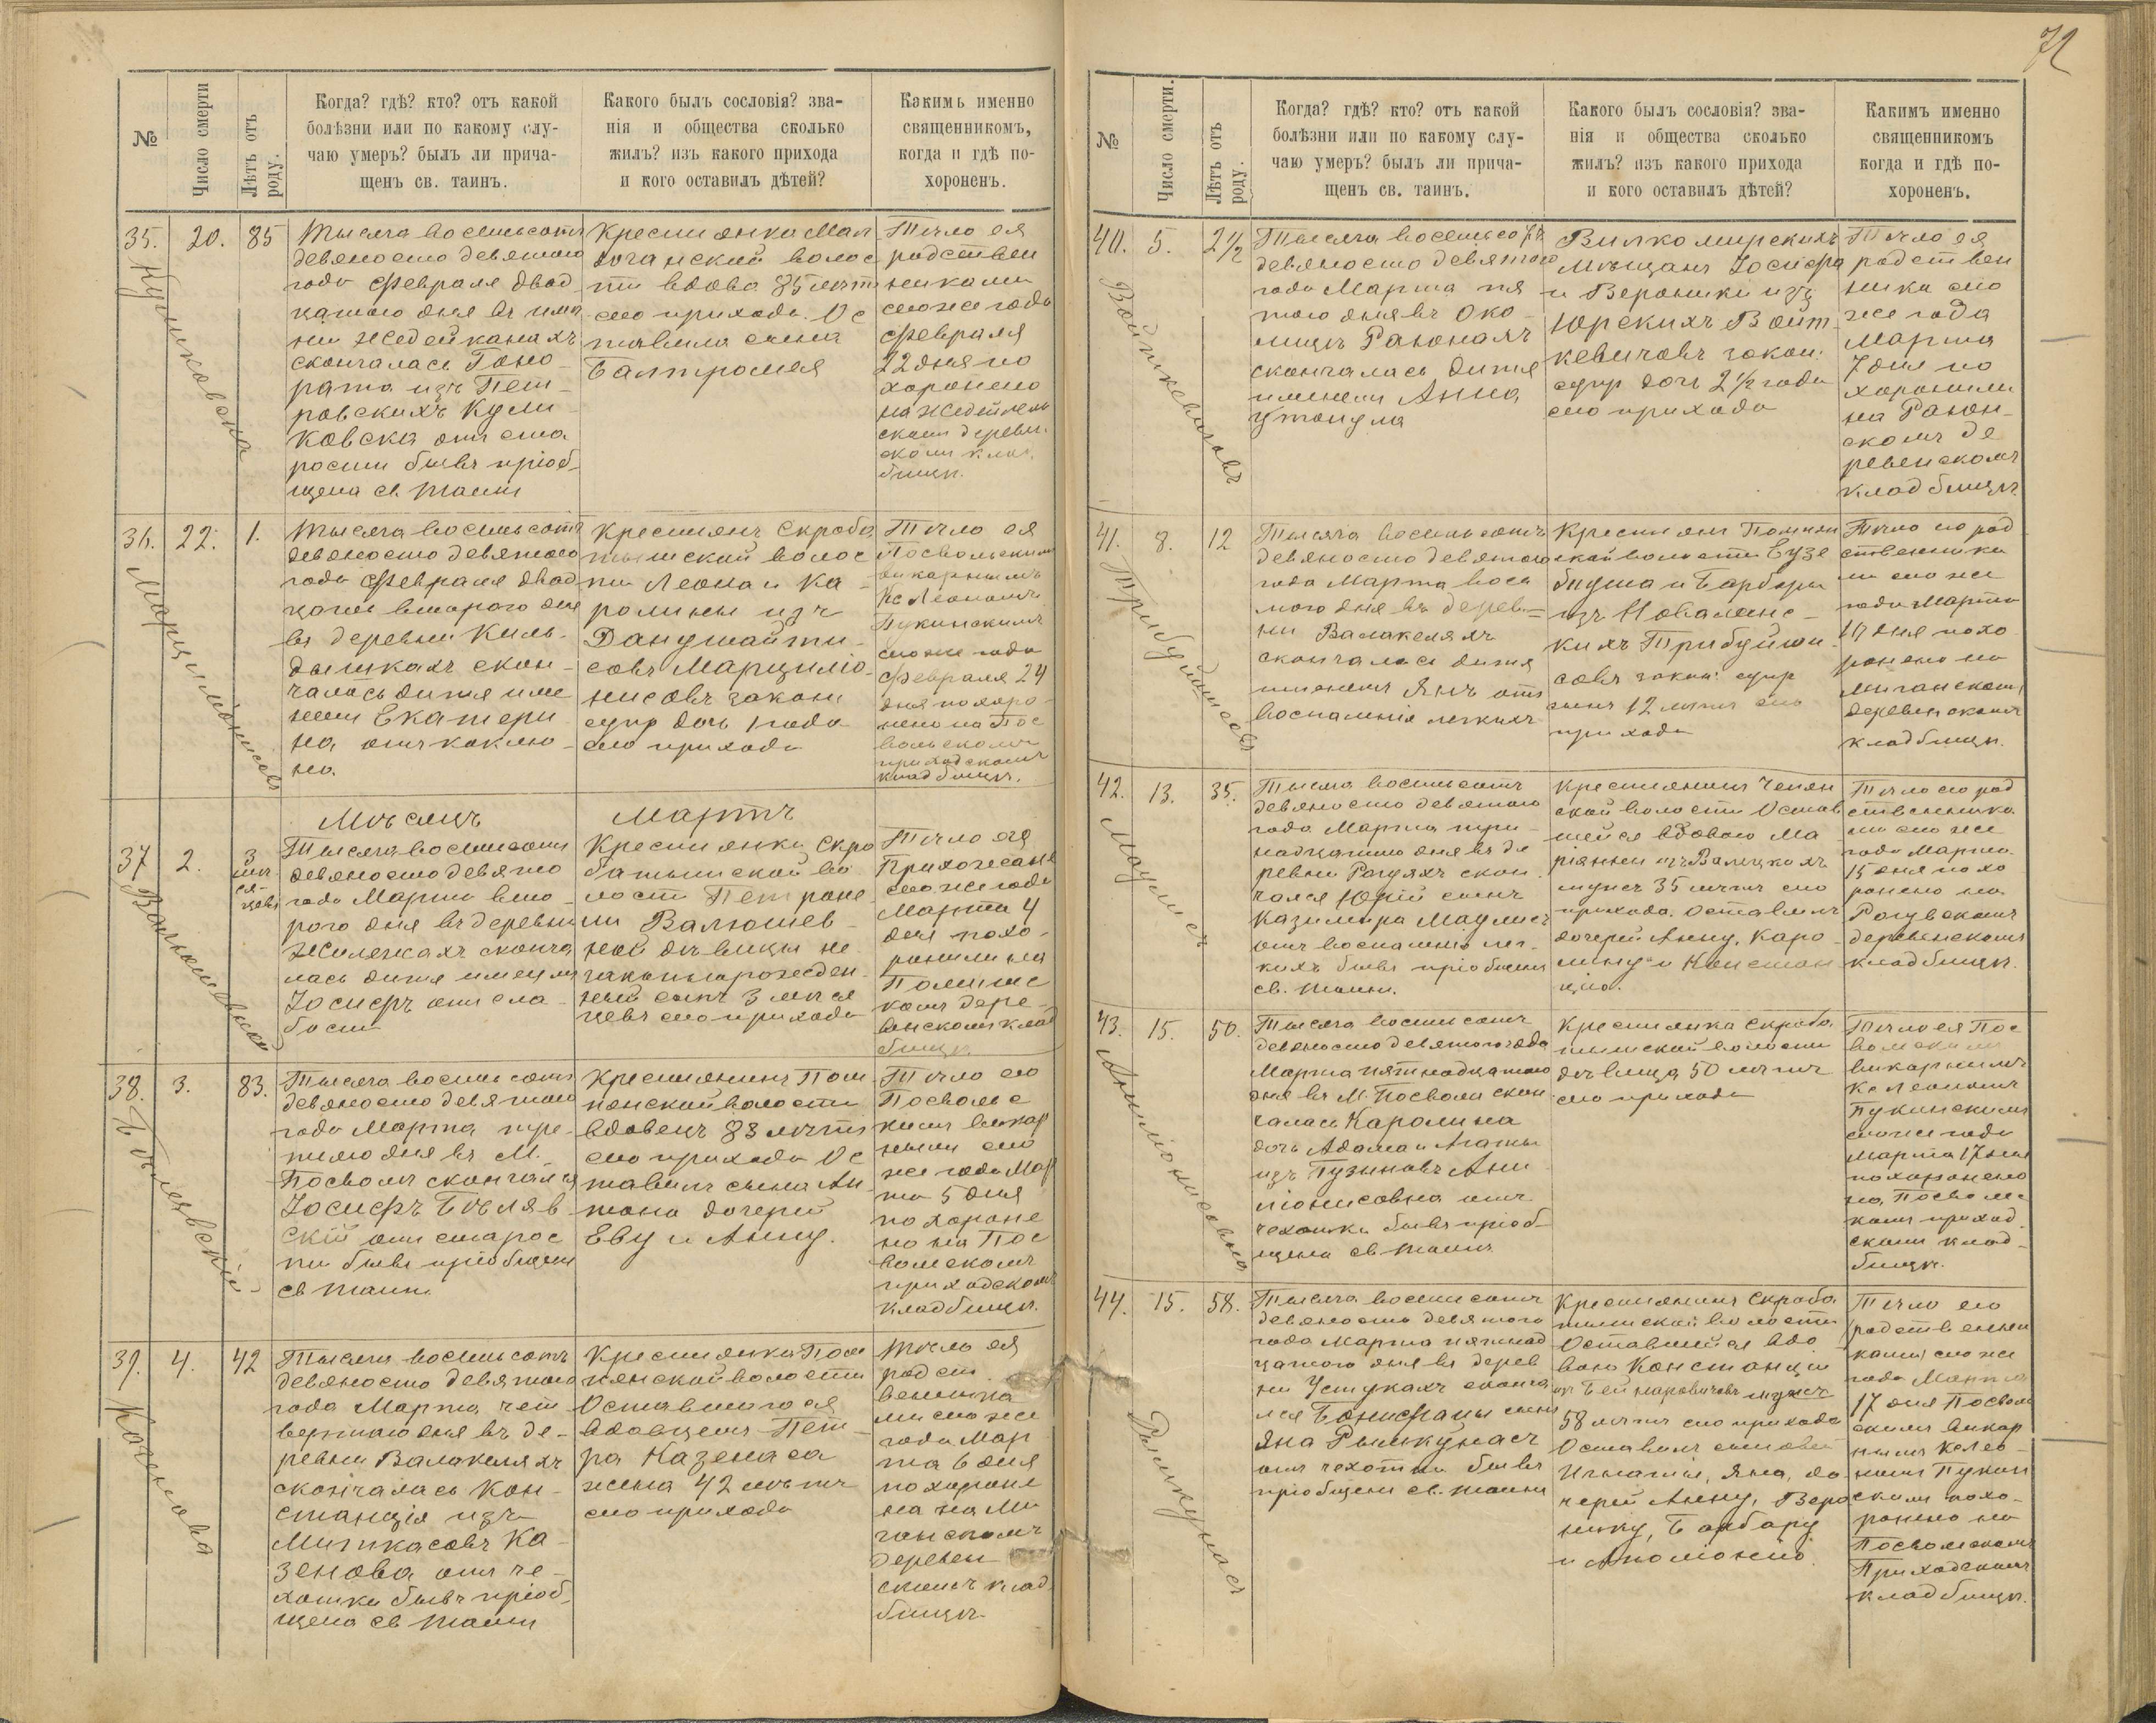 72
№
Число смерти
Лѣтъ отъ роду.
Когда? гдѣ? кто? отъ какой
болѣзни или по какому слу-
чаю умеръ? былъ ли прича-
щенъ св. таинъ.
Какого былъ сословія? зва-
нія и общества сколько
жилъ? изъ какого прихода
и кого оставилъ дѣтей?
Какимъ именно
священникомъ,
когда и гдѣ по-
хороненъ.
35.
20.
85
Куликовска
Тысяча восемьсотъ
девяносто девятого
года Февраля двад
цатого дня въ имѣ
ни Жедейканахъ
скончалась Гоно-
рата изъ Пет-
ровскихъ Кули-
ковска отъ ста
рости бывъ пріоб-
щена св. таинъ
Крестьянка
волос
ти вдова 85 лѣтъ
сего прихода. Ос
тавила сына
Балтромея
Тѣло ея
родствен
никами
сего же года
Февраля
22 дня по
хоронено
на
деревен
скомъ клад
бищѣ.
36.
22.
1.
Тысяча восемьсотъ
девяносто девятого
года Февраля двад
цать второго дня
въ деревни Киль-
дышкахъ скон-
чалась дитя име
немъ Екатери
на отъ коклю-
ша.
Крестьянъ Скробо
тышской волос
ти Леона и Ка-
ролины изъ
Данушайти-
совъ Марцинко-
нисовъ закон
супр дочь 1 года
сего прихода
Тѣло ея
Посвольскимъ
викарнымъ
Кс Леономъ
Пукинскимъ
сего же года
Февраля 24
дня похоро-
нено на Пос
вольскомъ
приходскомъ
кладбищѣ.
Мѣсяцъ Мартъ
37
2.
3
мѣ
ся-
цевъ
Тысяча восемьсотъ
девяносто девято
года Марта вто-
рого дня въ деревни
Жилечкахъ сконча
лась дитя именемъ
Іосифъ отъ сла-
бости
Крестьянки Скро
ботышской во
лости Петроне
ли Валюшев-
ной дѣвицы не
законнорожден-
ный сынъ 3 мѣся
цевъ сего прихода
Тѣло его
Прихожане
сего же года
Марта 4
дня похо-
ронили на
комъ дере-
венскомъ клад
бищѣ.
38.
3.
83.
Тысяча восемьсотъ
девяносто девятого
года Марта тре-
тьего дня въ М.
Посволѣ скончался
Іосифъ Бѣляв-
скій отъ старос
ти бывъ пріобщенъ
св таинъ
Крестьянинъ Пом
пянской волости
вдовецъ 83 лѣтъ
сего прихода Ос
тавилъ сына Ан
тона дочерей
Еву и Анну.
Тѣло его
Посвольс
кимъ викар
нымъ сего
же года Мар
та 5 дня
похороне
но на Пос
вольскомъ
приходскомъ
кладбищѣ.
39.
4.
42
Казенова
Тысяча восемьсотъ
девяносто девятого
года Марта чет
вертого дня въ де-
ревни Валакеляхъ
скончалась Кон-
станція изъ
Миткасовъ Ка
зенова отъ ча-
хотки бывъ пріоб-
щена св таинъ
Крестьянка Пом
пянской волости
Оставшагося
вдовцемъ Пет-
ра Казенаса
жена 42 лѣтъ
сего прихода
Тѣло ея
родст
венника
ми сего же
года Мар
та 6 дня
похороне
на на Ми
ганскомъ
деревен
скомъ клад
бищѣ.
№
Число смерти.
Лѣтъ отъ роду.
Когда? гдѣ? кто? отъ какой
болѣзни или по какому слу-
чаю умеръ? былъ ли прича-
щенъ св. таинъ.
Какого былъ сословія? зва-
нія и общества сколько
жилъ? изъ какого прихода
и кого оставилъ дѣтей?
Какимъ именно
священникомъ
когда и гдѣ по-
хороненъ.
40.
5.
2½
Войткевичовъ
Тысяча восемьсотъ
девяносто девятого
года Марта пя
того дня въ Око-
лицѣ Раюнахъ
скончалась дитя
именемъ Анна
утонула
Вилкомирскихъ
Мѣщанъ Іосифа
и Вероники изъ
Юрскихъ Войт-
кевичовъ закон:
супр дочь 2½ года
сего прихода
Тѣло ея
родствен
ники сего
же года
Марта
7 дня по
хоронили
на Раюн-
скомъ де
ревенскомъ
кладбищѣ.
41.
8.
12
Тысяча восемьсотъ
девяносто девятого
года Марта вось
мого дня въ дерев-
ни Валакеляхъ
скончалась дитя
именемъ Янъ отъ
воспаленія легкихъ
Крестьянъ Помпян
ской волости Еузе
биуша и Барбары
изъ Новаленс-
кихъ Трибуйши-
совъ закон: супр
сынъ 12 лѣтъ сего
прихода
Тѣло его род
ственника
ми сего же
года Марта
10 дня похо
ронено на
Миганскомъ
деревенскомъ
кладбищѣ.
42.
13.
35.
Мацулисъ
Тысяча восемьсотъ
девяносто девятого
года Марта три-
надцатого дня въ де
ревни Рагуяхъ скон
чался Юрій сынъ
Казимира Мацулисъ
отъ воспаленія лег-
кихъ бывъ пріобщенъ
св. таинъ.
Крестьянинъ
ской волости Остав
шейся вдовою Ма
ріянны изъ Валецкихъ
мужъ 35 лѣтъ сего
прихода. Оставилъ
дочерей Анну, Каро-
лину и Констан
цію.
Тѣло его род
ственника
ми сего же
года Марта
15 дня похо
ронено на
Рагувскомъ
деревенскомъ
кладбищѣ.
43.
15.
50.
Тысяча восемьсотъ
девяносто девятого года
Марта пятнадцатого
дня въ М. Посволи скон
чалась Каролина
дочь Адама и Агаты
изъ Пузиновъ Ан
ціонисовна отъ
чахотки бывъ пріоб-
щена св таинъ
Крестьянка Скробо
тышской волости
дѣвица 50 лѣтъ
сего прихода
Тѣло ея Пос
вольскимъ
викарнымъ
Кс Леономъ
Пукинскимъ
сего же года
Марта 17 дня
похоронено
на Посволь-
скомъ приход
скомъ клад-
бищѣ.
44.
15.
58.
Рымкунасъ
Тысяча восемьсотъ
девяносто девятого
года Марта пятнад
цатого дня въ дерев
ни Устукахъ сконча
лся Бонифацы сынъ
Яна Рымкунасъ
отъ чахотки бывъ
пріобщенъ св. таинъ
Крестьянинъ Скробо
тышской волости
Оставшейся вдо
вою Констанціи
изъ мужъ
58 лѣтъ сего прихода
Оставилъ сыновей
Игнатія, Яна, до
черей Анну, Веро
нику, Барбару
и Аполонію.
Тѣло его
родственни
ками сего же
года Марта
17 дня Посволь
скимъ викар
нымъ Кс Лео-
номъ Пукин
скимъ похо-
ронено на
Посвольскомъ
Приходскомъ
кладбищѣ.